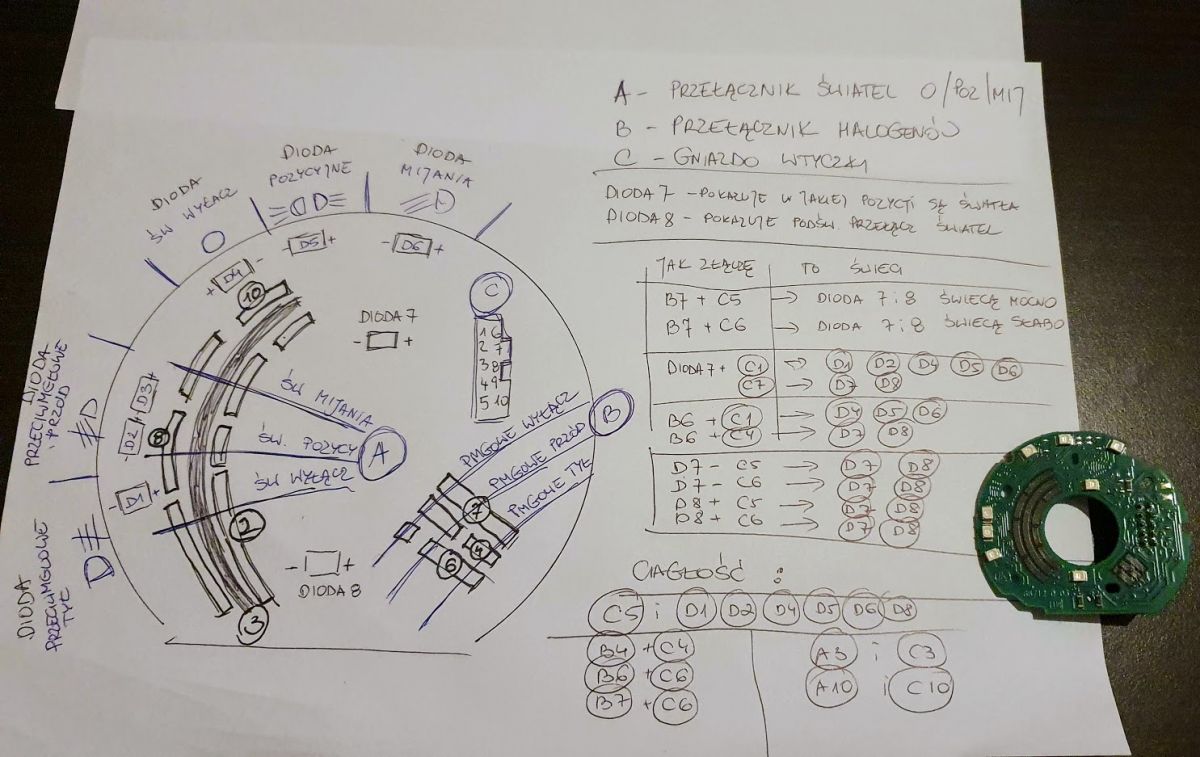 A - PRZEŁĄCZNIK ŚWIATEŁ 0/POZ/MIJ
B - PRZEŁĄCZNIK HALOGENÓW
C - GNIAZDO WTYCZKI
DIODA 7 - POKAZUJE W JAKIEJ POZYCJI SĄ ŚWIATŁA
DIODA 8 - POKAZUJE PODŚW. PRZEŁĄCZ ŚWIATEŁ
JAK ZŁĄCZĘ TO ŚWIECI
B7 + C5 → DIODA 7 i 8 ŚWIECĄ MOCNO
B7 + C6 → DIODA 7 i 8 ŚWIECĄ SŁABO
DIODA 7 + C1 → D1 D2 D4 D5 D6
C7 → D7 D8
B6 + C1 → D4 D5 D6
B6 + C4 → D7 D8
D7 - C5 → D7 D8
D7 - C6 → D7 D8
D8 + C5 → D7 D8
D8 + C6 → D7 D8
CIĄGŁOŚĆ :
C5 i D1 D2 D4 D5 D6 D8
B4 + C4
B6 + C6
B7 + C6
A3 i C3
A10 i C10
DIODA
ŚW WYŁĄCZ
DIODA
POZYCYJNE
DIODA
MIJANIA
DIODA
PRZECIWMGŁOWE
PRZÓD
DIODA
PRZECIWMGŁOWE
TYŁ
+ D4 -
- D5 +
- D6 +
D3 +
- D2 +
- D1 +
10
8
2
3
DIODA 7
- +
- +
DIODA 8
C
1 6
2 7
3 8
4 9
5 10
ŚW MIJANIA
ŚW. POZYCY
ŚW WYŁĄCZ
A
B
PMGOWE WYŁĄCZ
PMGOWE PRZÓD
PMGOWE TYŁ
7
4
6